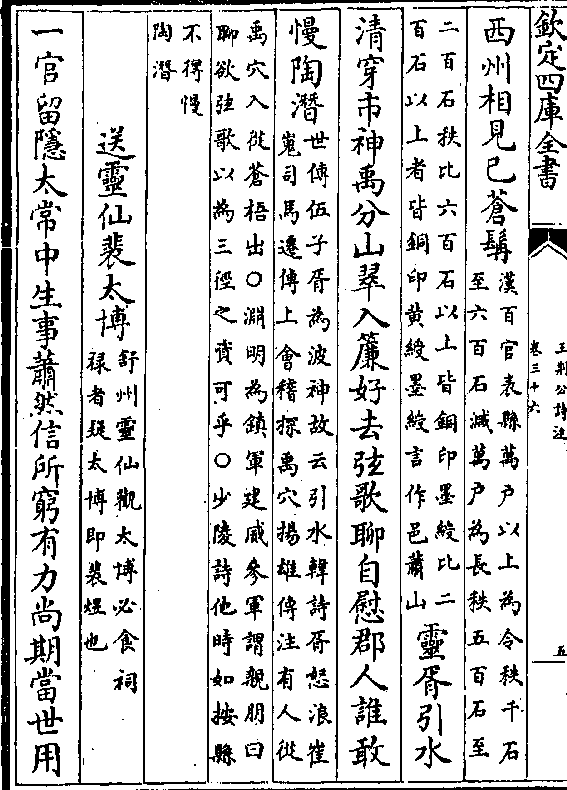 欽定四庫全書
西州相見已蒼髯漢百官表縣萬户以上為令秩千石
至六百石減萬户為長秩五百石至
二百石秩比六百石以上皆銅印墨綬比二
百石以上者皆銅印黄綬墨綬言作邑蕭山靈胥引水
清穿市神禹分山翠入簾好去弦歌聊自慰郡人誰敢
慢陶潛世傳伍子胥為波神故云引水韓詩胥怒浪崔
嵬司馬遷傳上會稽探禹穴揚雄傳注有人從
禹穴入從蒼梧出〇淵明為鎮軍建威參軍謂親朋曰
聊欲弦歌以為三徑之資可乎〇少陵詩他時如按縣
不得慢
陶潛
送靈仙裴太博舒州靈仙觀太博必食祠
禄者疑太博即裴煜也
一官留隱太常中生事蕭然信所窮有力尚期當世用
王荆公詩注
卷三十六
五